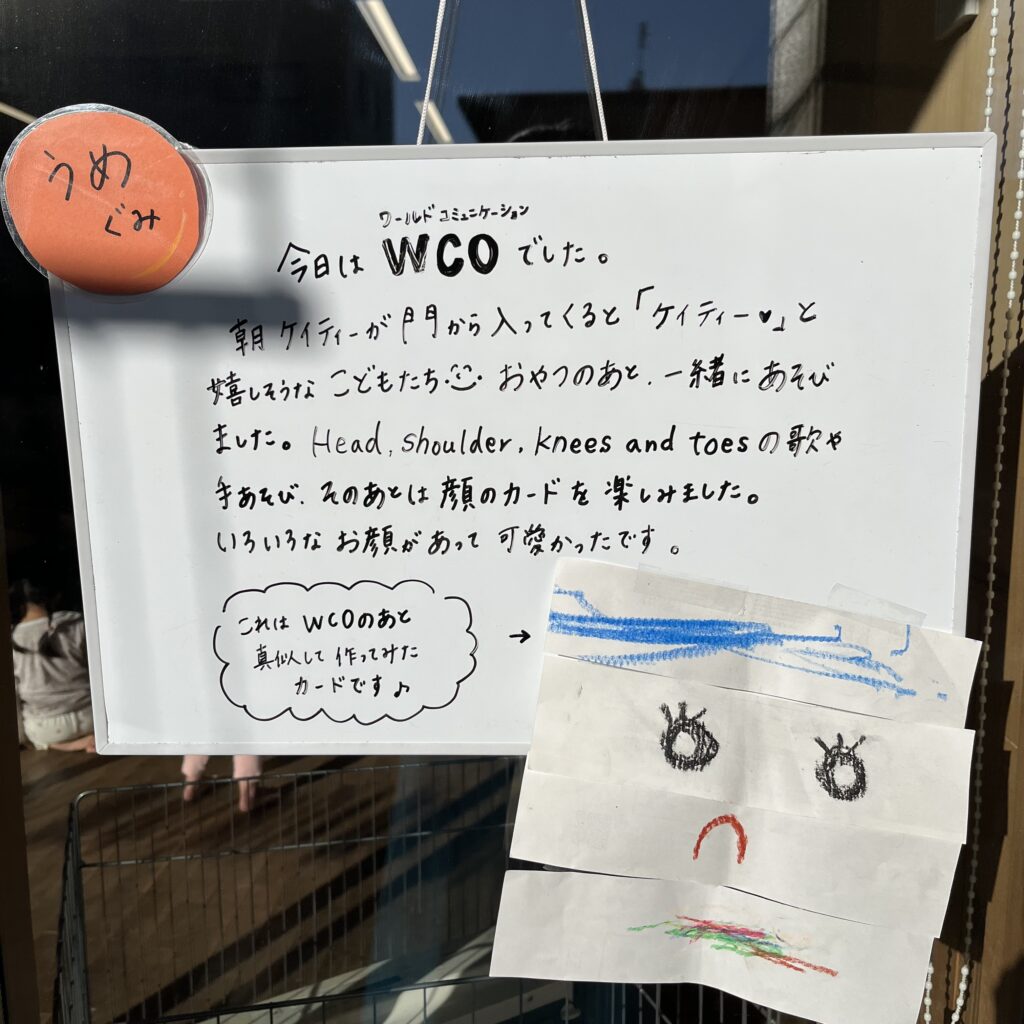 うめ
ぐみ
ワールドコミュニケーション
今日は WCO でした。
朝 ケイティーが 門から 入ってくると「ケイティー♥」と
嬉しそうな こどもたち おやつのあと、一緒に あそび
ました。Head, shoulder, knees and toes の 歌や
手あそび、そのあとは 顔のカードを 楽しみました。
いろいろな お顔が あって 可愛かったです。
これは WCOのあと
真似して 作ってみた
カードです♪
→